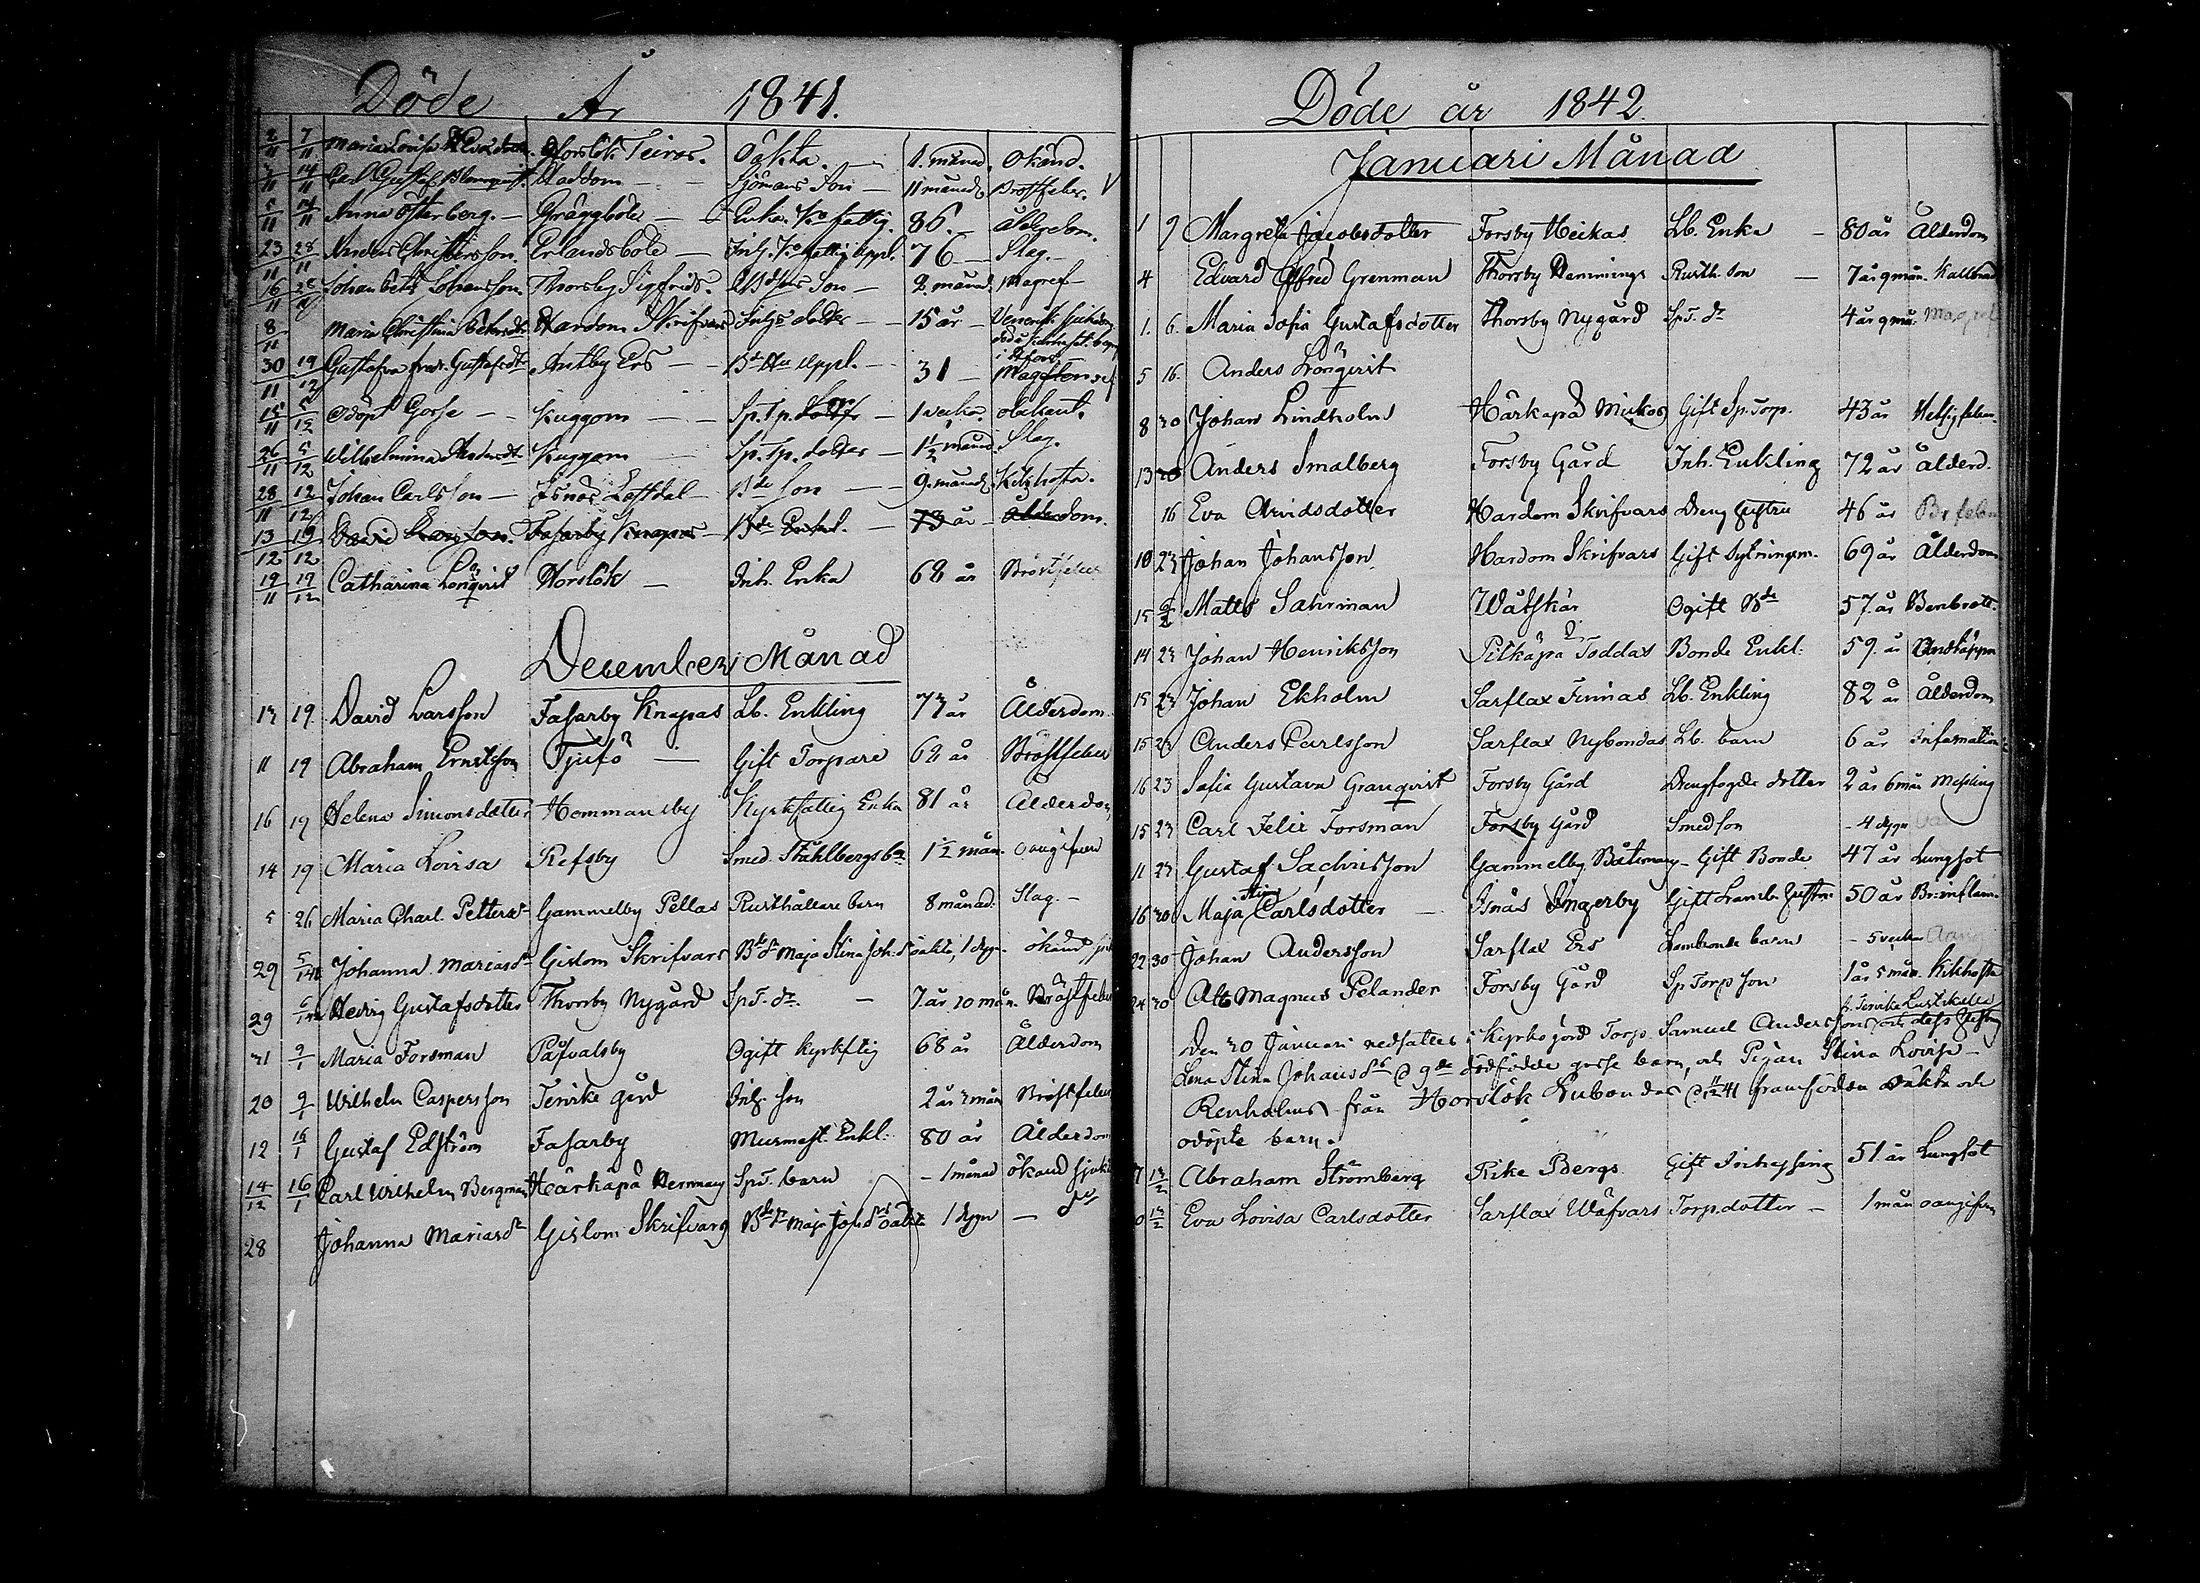 Döde År 1841.
2/11 7/11 Maria Lovisa Teiras. Oäkta. 1. månad okänd.
14/11 Carl Gustaf Blomqvist. Sjömans Son 11 månad Bröstfeber.
5/11 14/11 Anna Österberg. Gräggböle Enka fattig. 86. Ålderdom.
23/11 28/11 Anders Christersson. Erlandsböle Inh. fattig 76 Slag.
16/11 28/11 Johan Johansson. Thorsby Sigfrids. Son 2. månad. Magref
8/11 Maria Christina Hardom Skrifvars Inhs dotter 15 år Venerisk
30/11 19/12 Gustafva Gustafsdt Antby Ers 31
15/11 5/12 Odöpt Gosse Kuggom Sp. Tp. 1 vecka obekant.
26/11 5/12 Wilhelmina Kuggom Sp. Tp. dotter 1½ månad Slag.
28/11 12/12 Johan Carlsson Isnäs Bde Son 9. månad. Kikhosta.
13/12 19/12 David Larsson. Fasarby Knapas 73 år Ålderdom.
19/11 19/12 Catharina Lönqvist Horslök Inh. Enka 68 år Bröstfeber
December Månad
13 19. David Larsson Fasarby Knapas Lb. Enkling 73 år Ålderdom.
11 19 Abraham Ernstsson Tjufö Gift Torpare 62 år Bröstfeber
16 19 Helena Simonsdotter Hommansby Kyrkfattig Enka 81 år Ålderdom
14 19 Maria Lovisa Refsby Smed. Ståhlbergs 1½ mån. oangifven
5 26 Maria Charl. Pettersdr Gammelby Pellas Rusthållare barn 8 månad. Slag.
29 5/1 Johanna Mariasdr Gislom Skrifvars Bde dr Maja Stina Joh. dr oäkta, 1 dygn. okänd
29 6/1 Hedvig Gustafsdotter Thorsby Nygård SpT. dr. 7 år 10 mån. Bröstfeber
31 9/1 Maria Forsman Påsvalsby Ogift kyrkftig 68 år Ålderdom
20 9/1 Wilhelm Caspersson Tervike gård Inh. son 2 år 3 mån Bröstfeber
12 16/1 Gustaf Edström Fasarby Murmäst. Enkl. 80 år Ålderdom
14/12 16/1 Carl Wilhelm Bergman Härkäpä Hemming SpT. barn 1 månad okänd sjukd
28 Johanna Mariasdr Gislom Skrifvars Bde dr Maja Joh. dr oäkta 1 dygn do
Döde år 1842.
Januari Månad
1 9 Margreta Jacobsdotter Forsby Heikas Lb. Enka 80 år Ålderdom
4 Edvard Grenman Thorsby Hemmings Rusth. son 7 år 9 mån.
1. 6. Maria Sofia Gustafsdotter Thorsby Nygård SpT. dr 4 år 9 mån. Magref
5 16. Anders Lönqvist
8 30 Johan Lindholm Härkäpä Mickos Gift Sp. Torp. 43 år
13 Anders Smalberg Forsby Gård Inh. Enkling 72 år Ålderd.
16 Eva Arvidsdotter Hardom Skrifvars Dreng hustru 46 år Br feber
10 23 Johan Johansson Hardom Skrifvars Gift Sytningsm. 69 år Ålderdom
15 2/2 Matts Sahrman Wåtskär Ogift Bde 57. år Benbrott.
14 23 Johan Henriksson Pitkäpä Toddas Bonde Enkl. 59. år Andtäppa
15 23 Johan Ekholm Sarflax Finnas Lb. Enkling 82 år Ålderdom
15 23 Anders Carlsson Sarflax Nybondas Lb. barn 6 år Inflamation
16 23 Sofia Gustava Granqvist Forsby Gård Drengfogde dotter 2 år 6 mån Messling
15 23 Carl Felix Forsman Forsby Gård Smedson 4 dygn
11 23 Gustaf Sachrisson Gammelby Båtsmans Gift Bonde 47 år Lungsot
16 30 Maja Stina Carlsdotter Isnäs Ingerby Gift Lamb. hustru 50 år Br. inflam.
22 30 Johan Andersson Sarflax Ers Lambonde barn 5 veckor
24 30 Magnus Pelander Forsby Gård Sp. Torp son 1 år 5 mån. Kikhosta
Den 30 Januari nedsattes i Kyrkogård Torp. Samuel Anderssons och dess hustru
Lena Stina Johansdr dödfödde gosse barn, och Pigan Stina Lovisa
Renholms från Horslök Nubondas framfödda oäkta och
odöpte barn.
7 13/2 Abraham Strömberg Rike Bergs Gift Inhysing 51 år Lungsot
13/2 Eva Lovisa Carlsdotter Sarflax Wäfvars Torp. dotter 1 mån oangifven